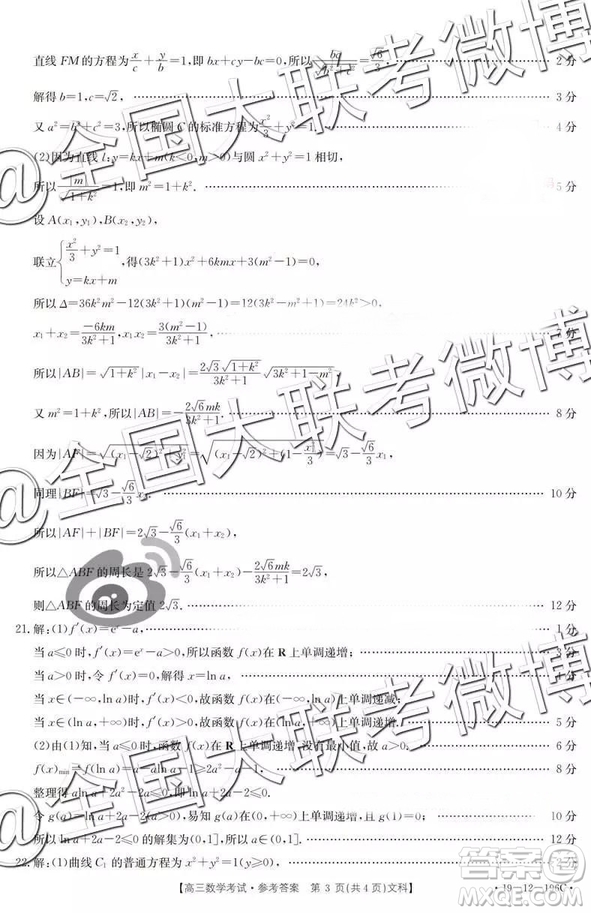 直线FM的方程为x/c+y/b=1,即bx+cy-bc=0,所以bc/√(b²+c²)=√6/3 2分
解得b=1,c=√2, 3分
又a²=b²+c²=3,所以椭圆C的标准方程为x²/3+y²=1. 4分
(2)因为直线l:y=kx+m(k<0,m>0)与圆x²+y²=1相切,
所以|m|/√(1+k²)=1,即m²=1+k². 5分
设A(x₁,y₁),B(x₂,y₂),
联立{x²/3+y²=1 y=kx+m,得(3k²+1)x²+6kmx+3(m²-1)=0,
所以Δ=36k²m²-12(3k²+1)(m²-1)=12(3k²-m²+1)=24k²>0,
x₁+x₂=-6km/(3k²+1),x₁x₂=3(m²-1)/(3k²+1). 7分
所以|AB|=√(1+k²)|x₁-x₂|=2√3√(1+k²)/(3k²+1)
又m²=1+k²,所以|AB|=-2√6mk/(3k²+1). 8分
因为|AF|=√((x₁-√2)²+y₁²)=√((x₁-√2)²+(1-x₁²/3))=√3-√6/3x₁,
同理|BF|=√3-√6/3x₂, 10分
所以|AF|+|BF|=2√3-√6/3(x₁+x₂),
所以△ABF的周长是2√3-√6/3(x₁+x₂)-2√6mk/(3k²+1)=2√3,
则△ABF的周长为定值2√3. 12分
21.解:(1)f′(x)=eˣ-a, 1分
当a≤0时,f′(x)=eˣ-a>0,所以函数f(x)在R上单调递增; 2分
当a>0时,令f′(x)=0,解得x=ln a, 3分
当x∈(-∞,ln a)时,f′(x)<0,故函数f(x)单调递减; 4分
当x∈(ln a,+∞)时,f′(x)>0,故函数f(x)单调递增. 5分
(2)由(1)知,当a≤0时,函数f(x)在R上单调递增,没有最小值,故a>0. 6分
f(x)min=f(ln a)=a-aln a-2a²+a≥0 8分
整理得aln a+2a²-2a≤0,即ln a+2a-2≤0.
令g(a)=ln a+2a-2(a>0),易知g(a)在(0,+∞)上单调递增,且g(1)=0; 10分
所以ln a+2a-2≤0的解集为(0,1],所以a∈(0,1]. 12分
22.解:(1)曲线C₁的普通方程为
【高三数学考试·参考答案 第3页(共4页)文科】 ·19-12-196C·
@全国大联考微博
@全国大联考微博
@全国大联考微博